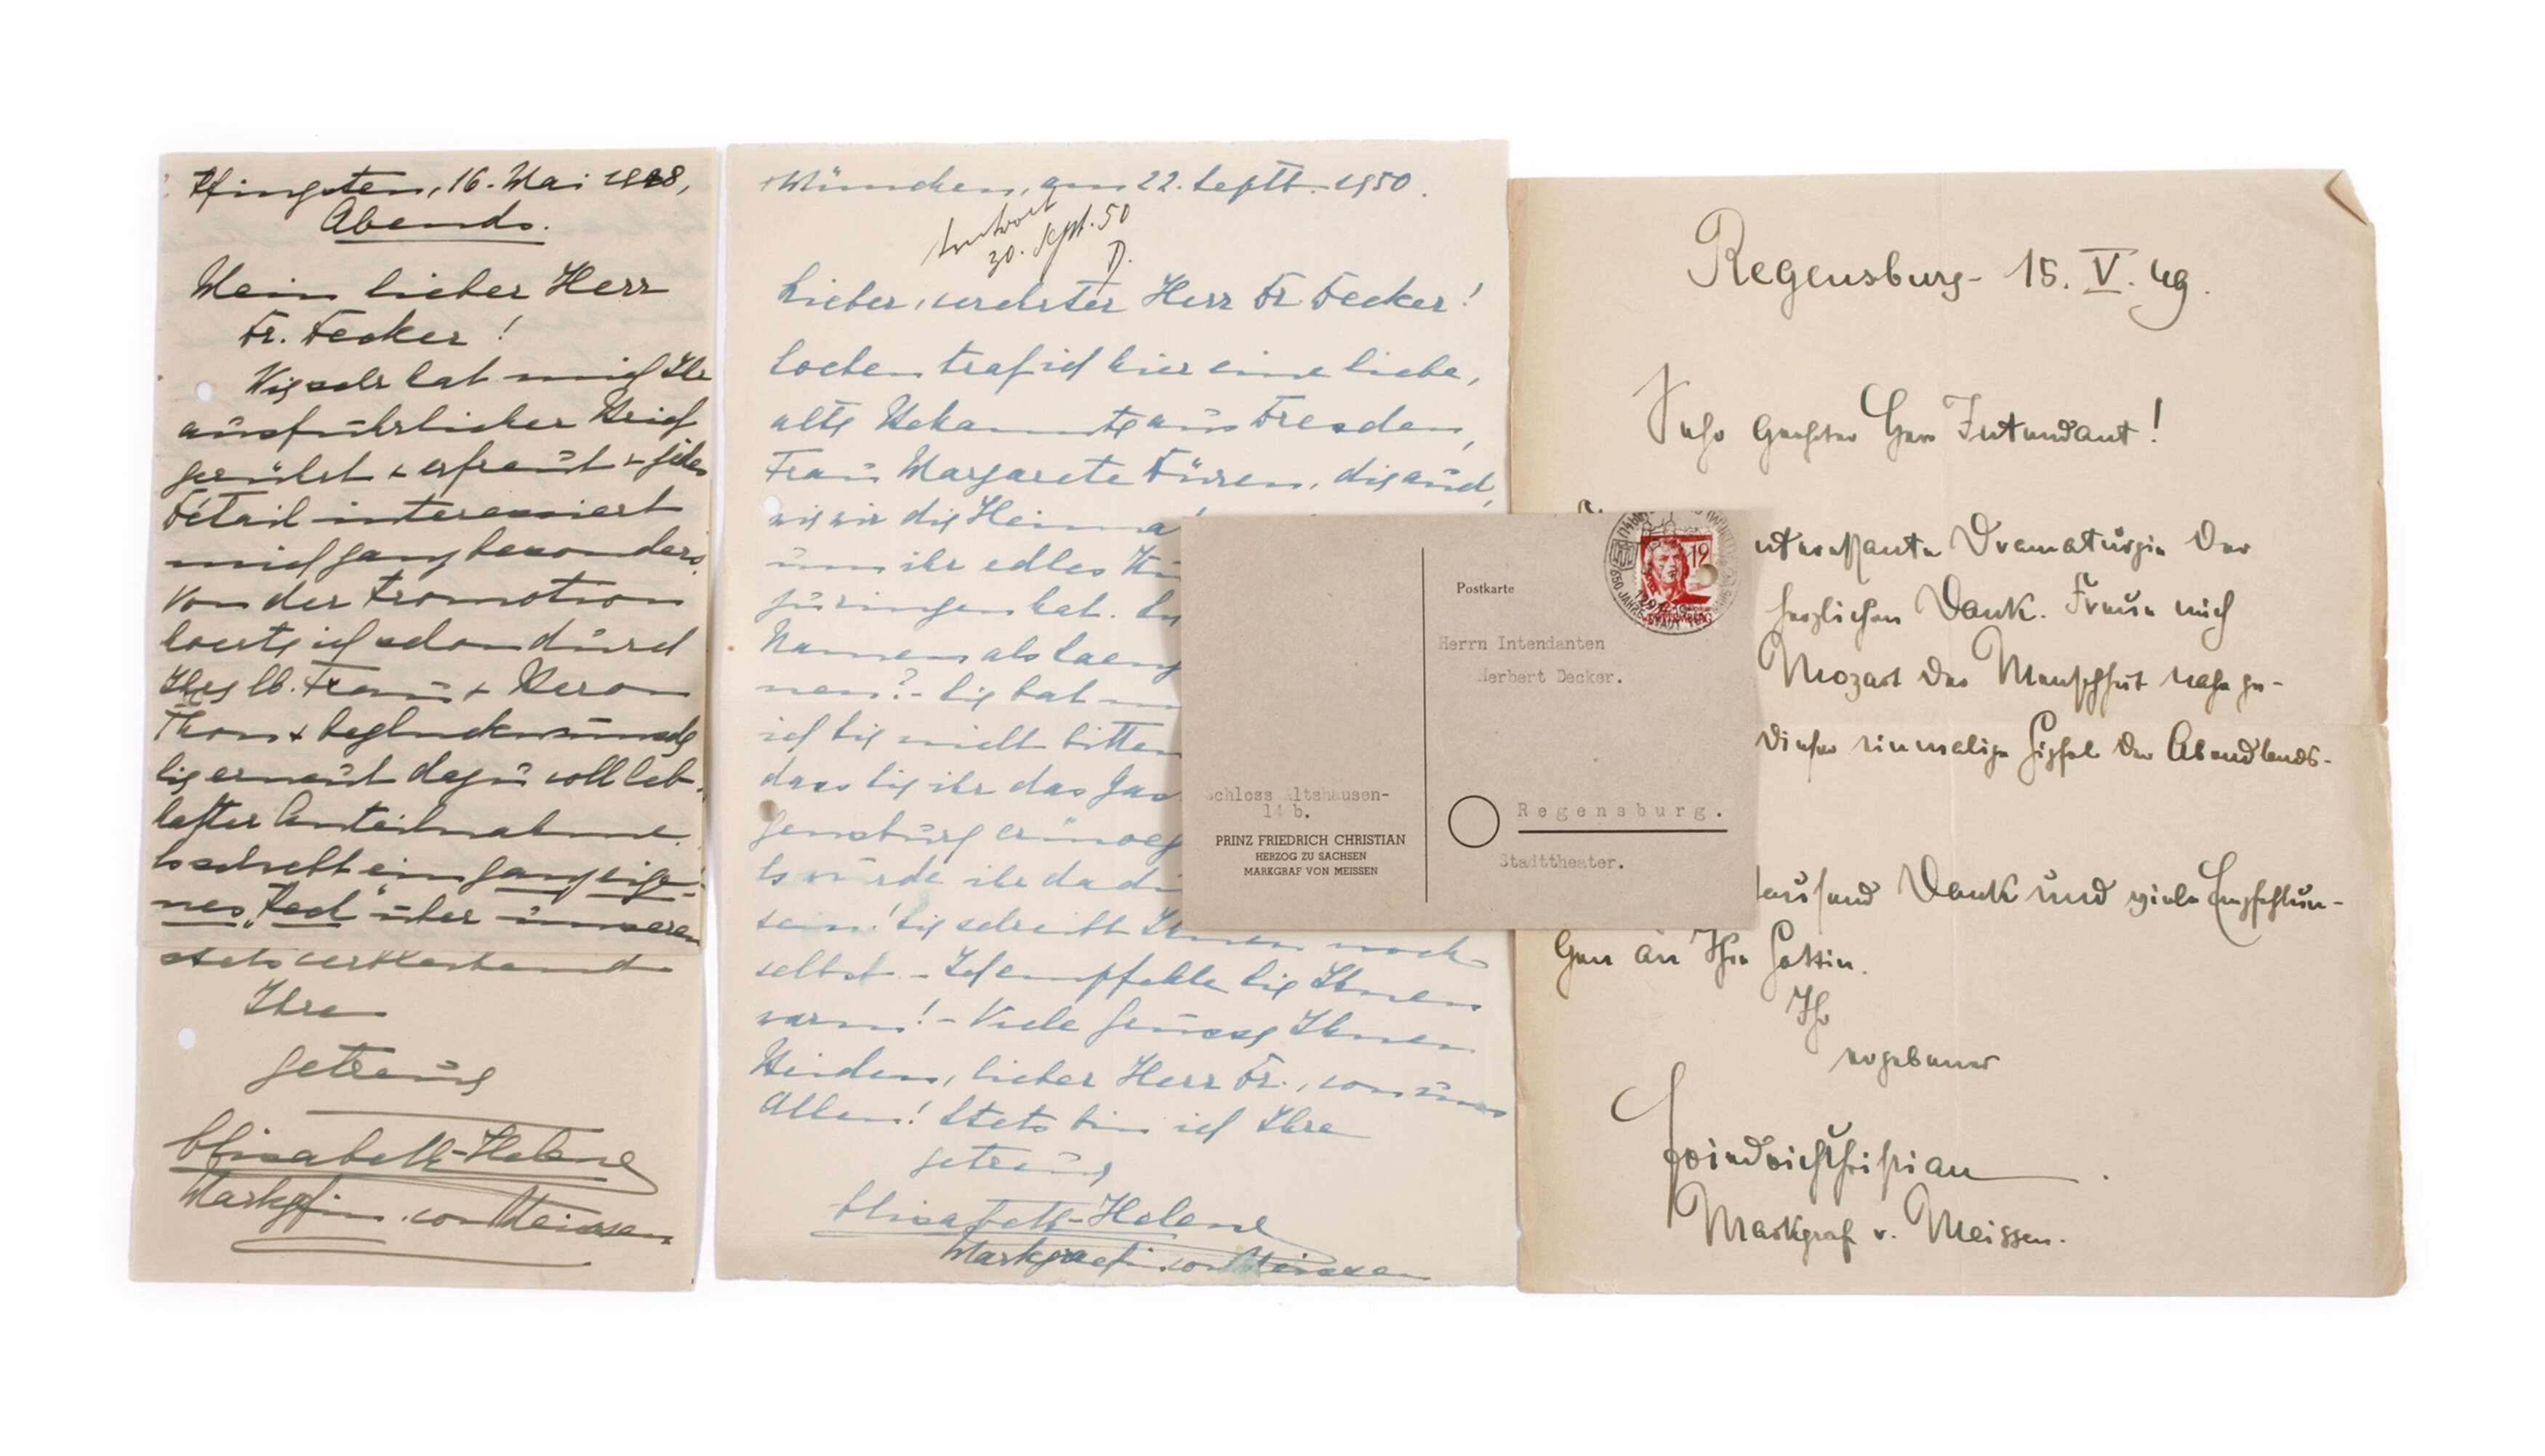 Pfingsten, 16. Mai 1948,
Abends.
Mein lieber Herr
Dr. Decker!
Wie sehr hat mich Ihr
ausführlicher Brief
gerührt + erfreut + jedes
Détail interessiert
mich ganz besonders.
Von der Promotion
hoerte ich schon durch
Ihre lb. Frau + Baron
Thon + beglückwünsche
Sie erneut dazu voll leb-
hafter Anteilnahme.
Es schwebt ein ganz eige-
nes „Pech“ über unseren
stets verbleibend
Ihre
getreue
Elisabeth-Helene
Markgfin. von Meissen
München, am 22. Septb. 1950.
Antwort
30. Sept. 50
D.
Lieber, verehrter Herr Dr. Decker!
Soeben traf ich hier eine liebe,
alte Bekannte aus Dresden,
Frau Margarete Düren, die auch,
wie wir die Heima
um ihr edles Kü
zu ringen hat. Du
Namen als Saeng
nen? - Sie bat m
ich Sie nicht bitten
dass Sie ihr das Gas
gensburg ermoeg
Es würde ihr da d
sein! Sie schreibt Ihnen noch
selbst. - Ich empfehle sie Ihnen
warm! - Viele Grüsse Ihnen
Beiden, lieber Herr Dr., von uns
Allen! Stets bin ich Ihre
getreue
Elisabeth-Helene
Markgraefin von Meissen
Postkarte
12
Herrn Intendanten
Herbert Decker.
Schloss Altshausen-
14 b.
PRINZ FRIEDRICH CHRISTIAN
HERZOG ZU SACHSEN
MARKGRAF VON MEISSEN
Regensburg.
Stadttheater.
Regensburg - 15. V. 49.
Sehr geehrter Herr Intendant!
nteressante Dramaturgie der
herzlichen Dank. Freue mich
Mozart der Menschheit nahe ge-
dieser einmalige Gipfel der Abendlands-
tausend Dank und viele Empfehlun-
gen an Ihre Gattin.
Ihr
ergebener
Friedrich Christian
Markgraf v. Meissen.